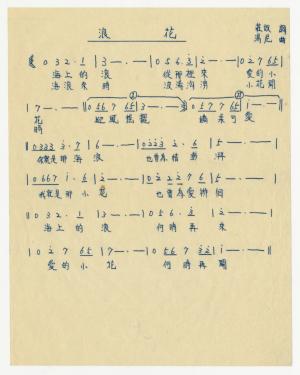 浪 花
莊奴 詞
馮尼 曲
0 3 2 · 1 | 3 — · — · | 0 5 6 · 3 | 2 — · — · | 0 2 7 6 5 |
海上的浪 從那裡來 愛的小
海浪來時 浪濤洶湧 小花開
| 7 — · — · | 0 5 6 7 6 5 | 3 — · — · | 0 5 7 7 6 5 | 1 — · — · ||
花 迎風搖觀 嬌柔可愛
時
|| 0 3 3 3 3 · 7 | 6 — · — · | 0 2 2 3 2 · 6 | 5 — · — · |
我就是那海浪 也曾為情澎湃
| 0 6 6 7 1 · 6 | 2 — · — · | 0 2 2 2 7 6 | 5 — · — · ||
我就是那小花 也曾為愛徘徊
|| 0 3 2 · 1 | 3 — · — · | 0 5 6 · 3 | 2 — · — · |
海上的浪 何時再來
| 0 2 7 6 5 | 7 — · — · | 0 5 6 7 3 2 | 1 — · — · ||
愛的小花 何時再開